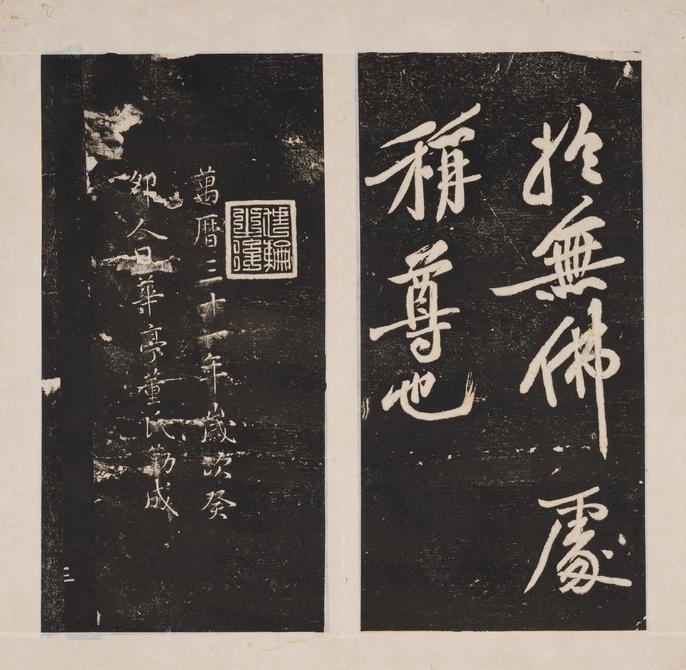 於無佛處
稱尊也
萬曆三十一年歲次癸
卯人日華亭董氏勒成
三